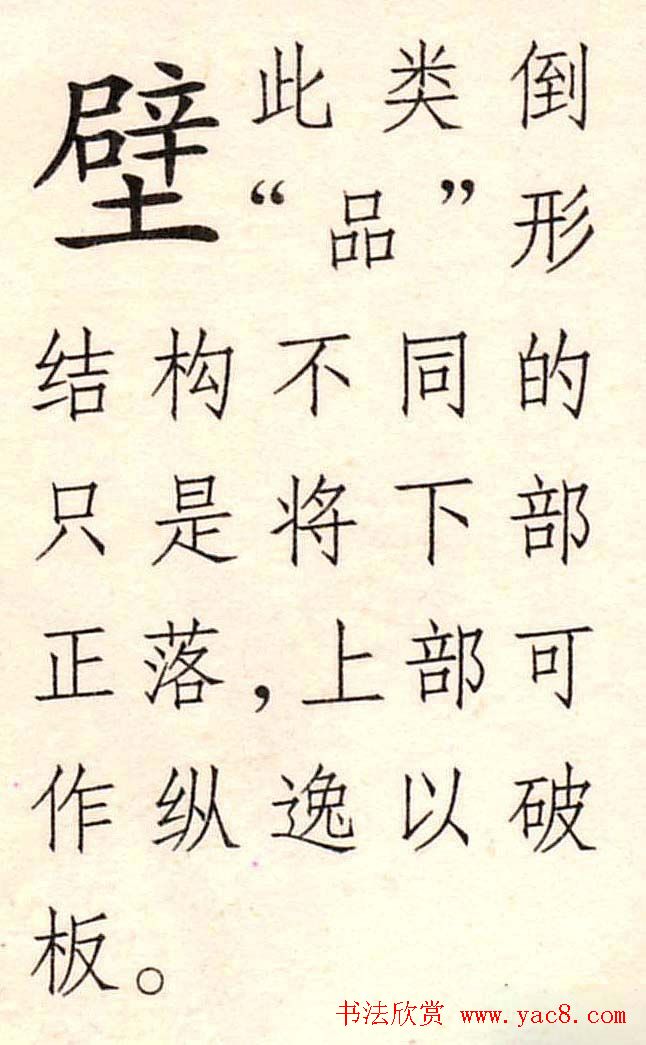 壁
此类倒
“品”形
结构不同的
只是将下部
正落,上部可
作纵逸以破
板。
书法欣赏 www.yac8.com